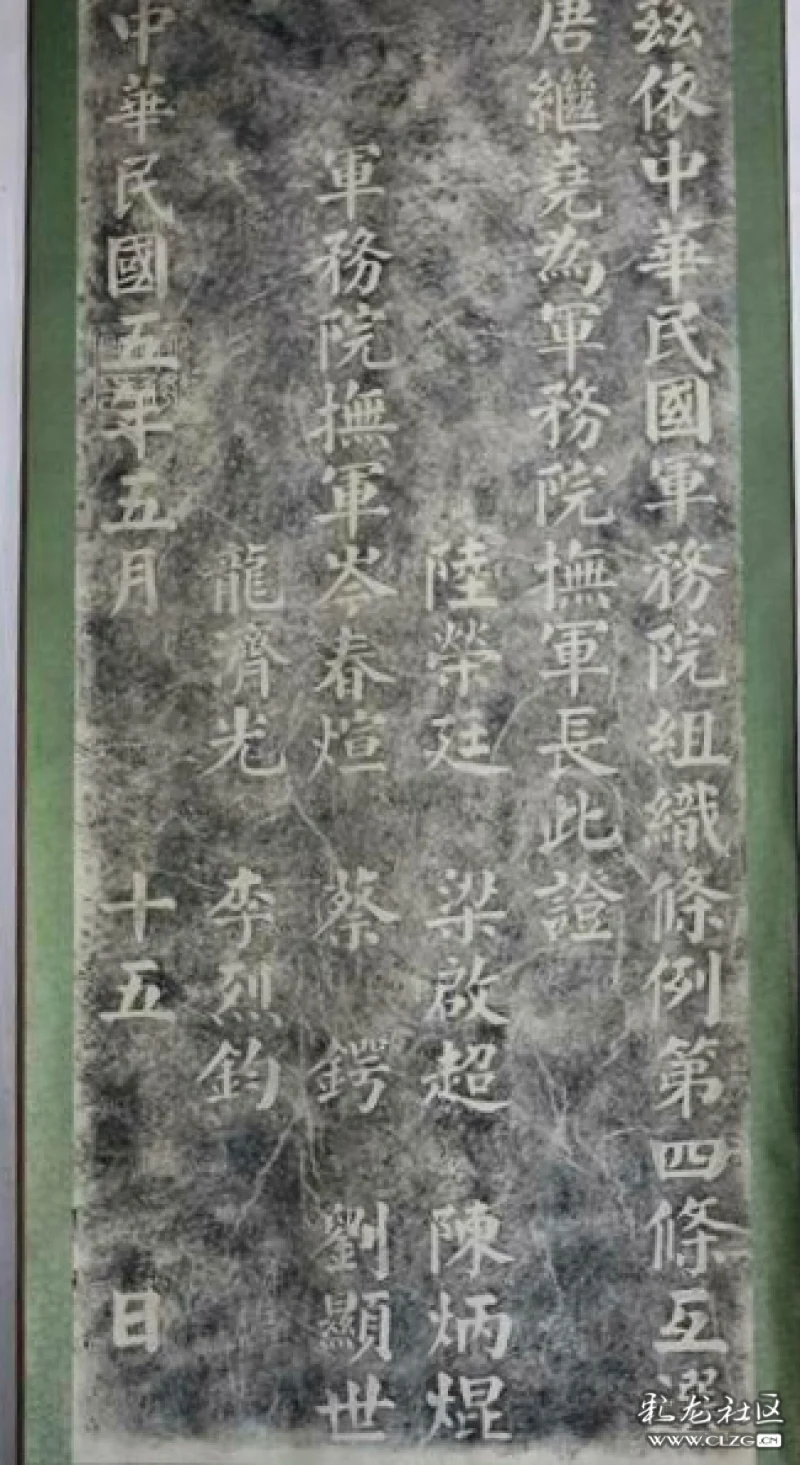 茲依中華民國軍務院組織條例第四條互選
唐繼堯為軍務院撫軍長此證
陸榮廷 梁啟超 陳炳焜
軍務院撫軍岑春煊 蔡鍔 劉顯世
龍濟光 李烈鈞
中華民國五年五月 十五 日
彩龙社区
WWW.CLZG.CN